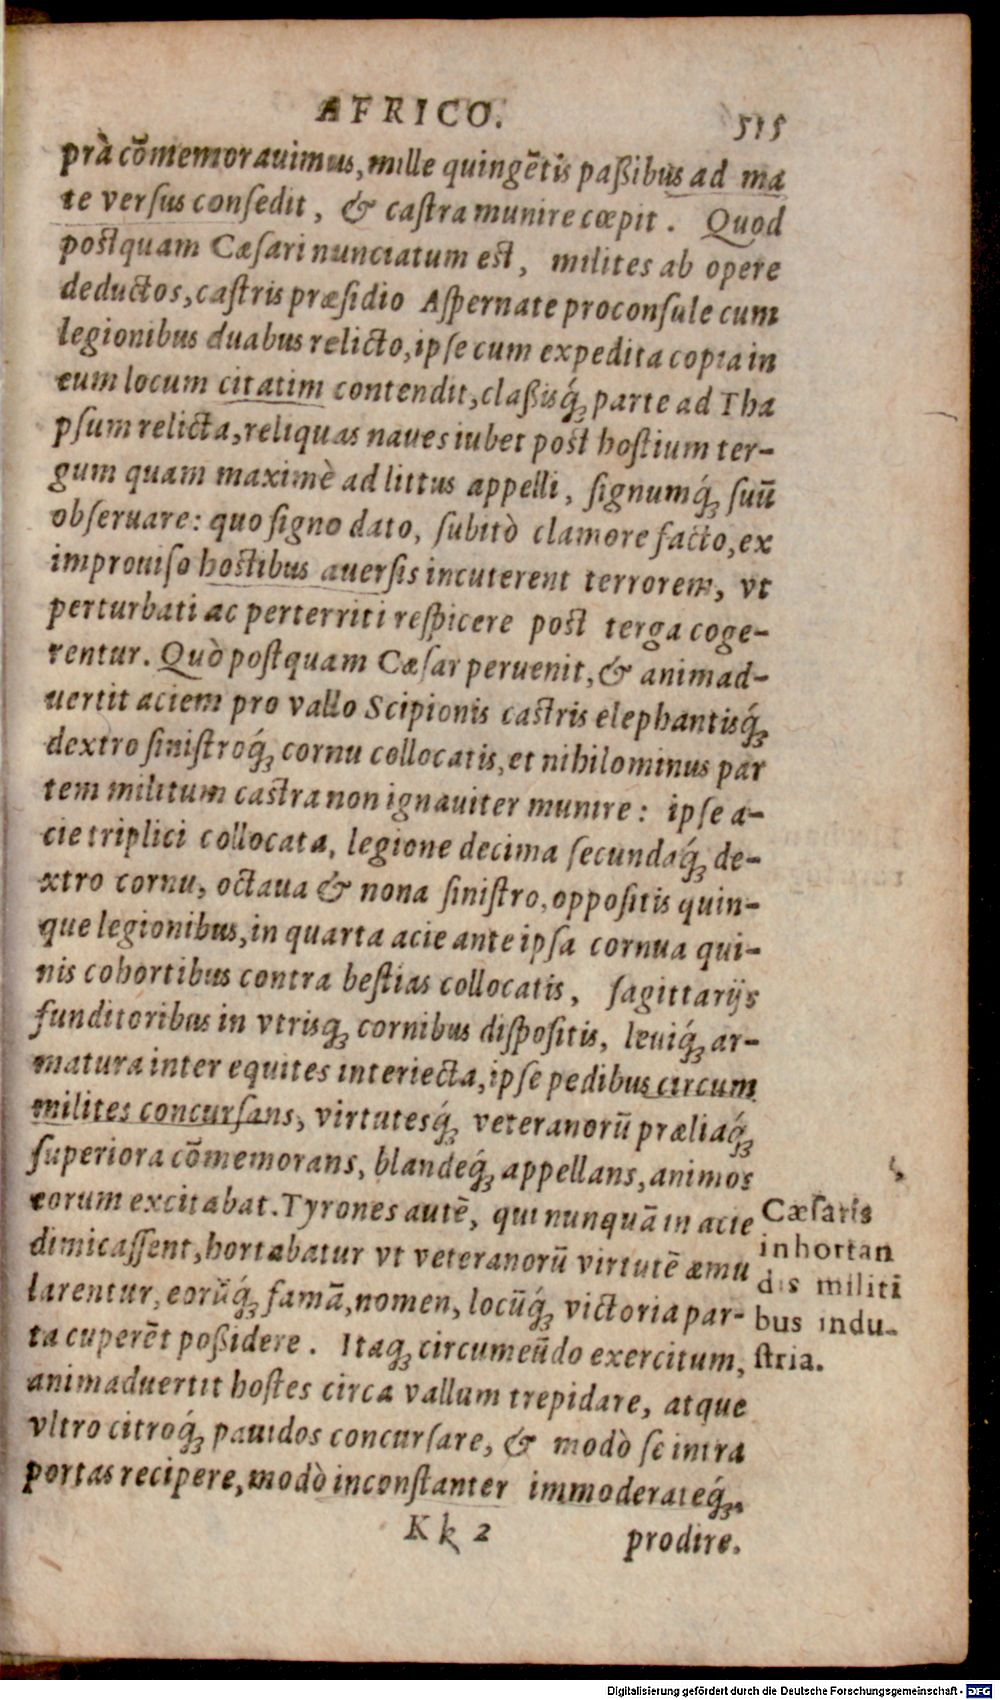 AFRICO. 515
prà cōmemorauimus, mille quingētis paßibus ad ma
te versus consedit, & castra munire cœpit. Quod
postquam Cæsari nunctatum est, milites ab opere
deductos, castris præsidio Aspernate proconsule cum
legionibus duabus relicto, ipse cum expedita copia in
eum locum citatim contendit, claßisq́; parte ad Tha
psum relicta, reliquas naues iubet post hostium ter-
gum quam maximè ad littus appelli, signumq́; suū
obseruare: quo signo dato, subitò clamore facto, ex
improuiso hostibus auersis incuterent terrorem, vt
perturbati ac perterriti respicere post terga coge-
rentur. Quò postquam Cæsar peruenit, & animad-
uertit aciem pro vallo Scipionis castris elephantisq́;
dextro sinistroq́; cornu collocatis, et nihilominus par
tem militum castra non ignauiter munire: ipse a-
cie triplici collocata, legione decima secundaq́; de-
xtro cornu, octaua & nona sinistro, oppositis quin-
que legionibus, in quarta acie ante ipsa cornua qui-
nis cohortibus contra bestias collocatis, sagittarijs
funditoribus in vtrisq; cornibus dispositis, leuiq́; ar-
matura inter equites interiecta, ipse pedibus circum
milites concursans, virtutesq́; veteranorū præliaq́;
superiora cōmemorans, blandeq́; appellans, animos
eorum excitabat. Tyrones autē, qui nunquā in acie
dimicassent, hortabatur vt veteranorū virtutē æmu
larentur, eorūq́; famā, nomen, locūq́; victoria par-
ta cuperēt poßidere. Itaq; circumeūdo exercitum,
animaduertit hostes circa vallum trepidare, atque
vltro citroq́; pauidos concursare, & modò se intra
portas recipere, modò inconstanter immoderateq́;.
Kk 2 prodire.
Cæsaris
inhortan
dis militi
bus indu-
stria.
Digitalisierung gefördert durch die Deutsche Forschungsgemeinschaft - DFG